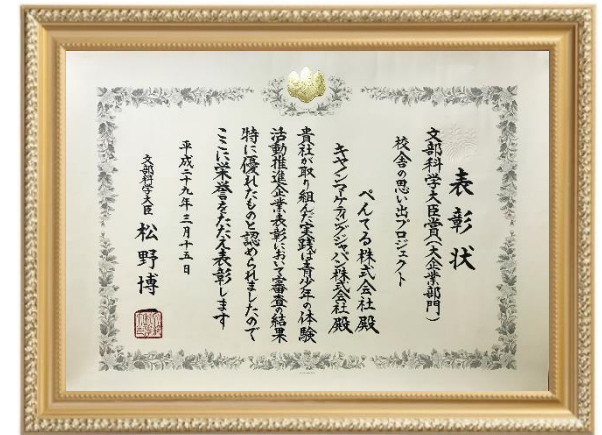 表彰状
文部科学大臣賞(大企業部門)
校舎の思い出プロジェクト
ぺんてる株式会社殿
キヤノンマーケティングジャパン株式会社殿
貴社が取り組んだ実践は青少年の体験
活動推進企業表彰において審査の結果
特に優れたものと認められましたので
ここに栄誉をたたえ表彰します
平成二十九年三月十五日
文部科学大臣 松野博一